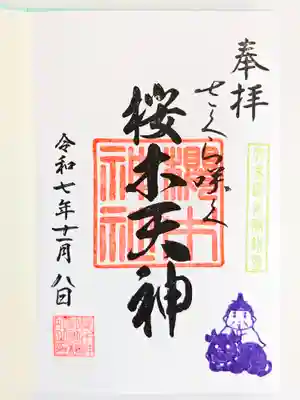 奉拝
さくら咲く
桜木天神
櫻木神社
令和七年十一月八日